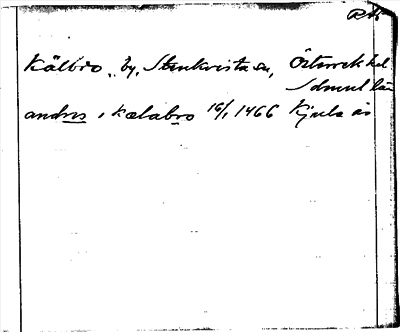 RA
Kälbro, by, Stenkvista sn, Österrek hd
Sdmnl län
andres i kalabro 16/1 1466 Kjula ås